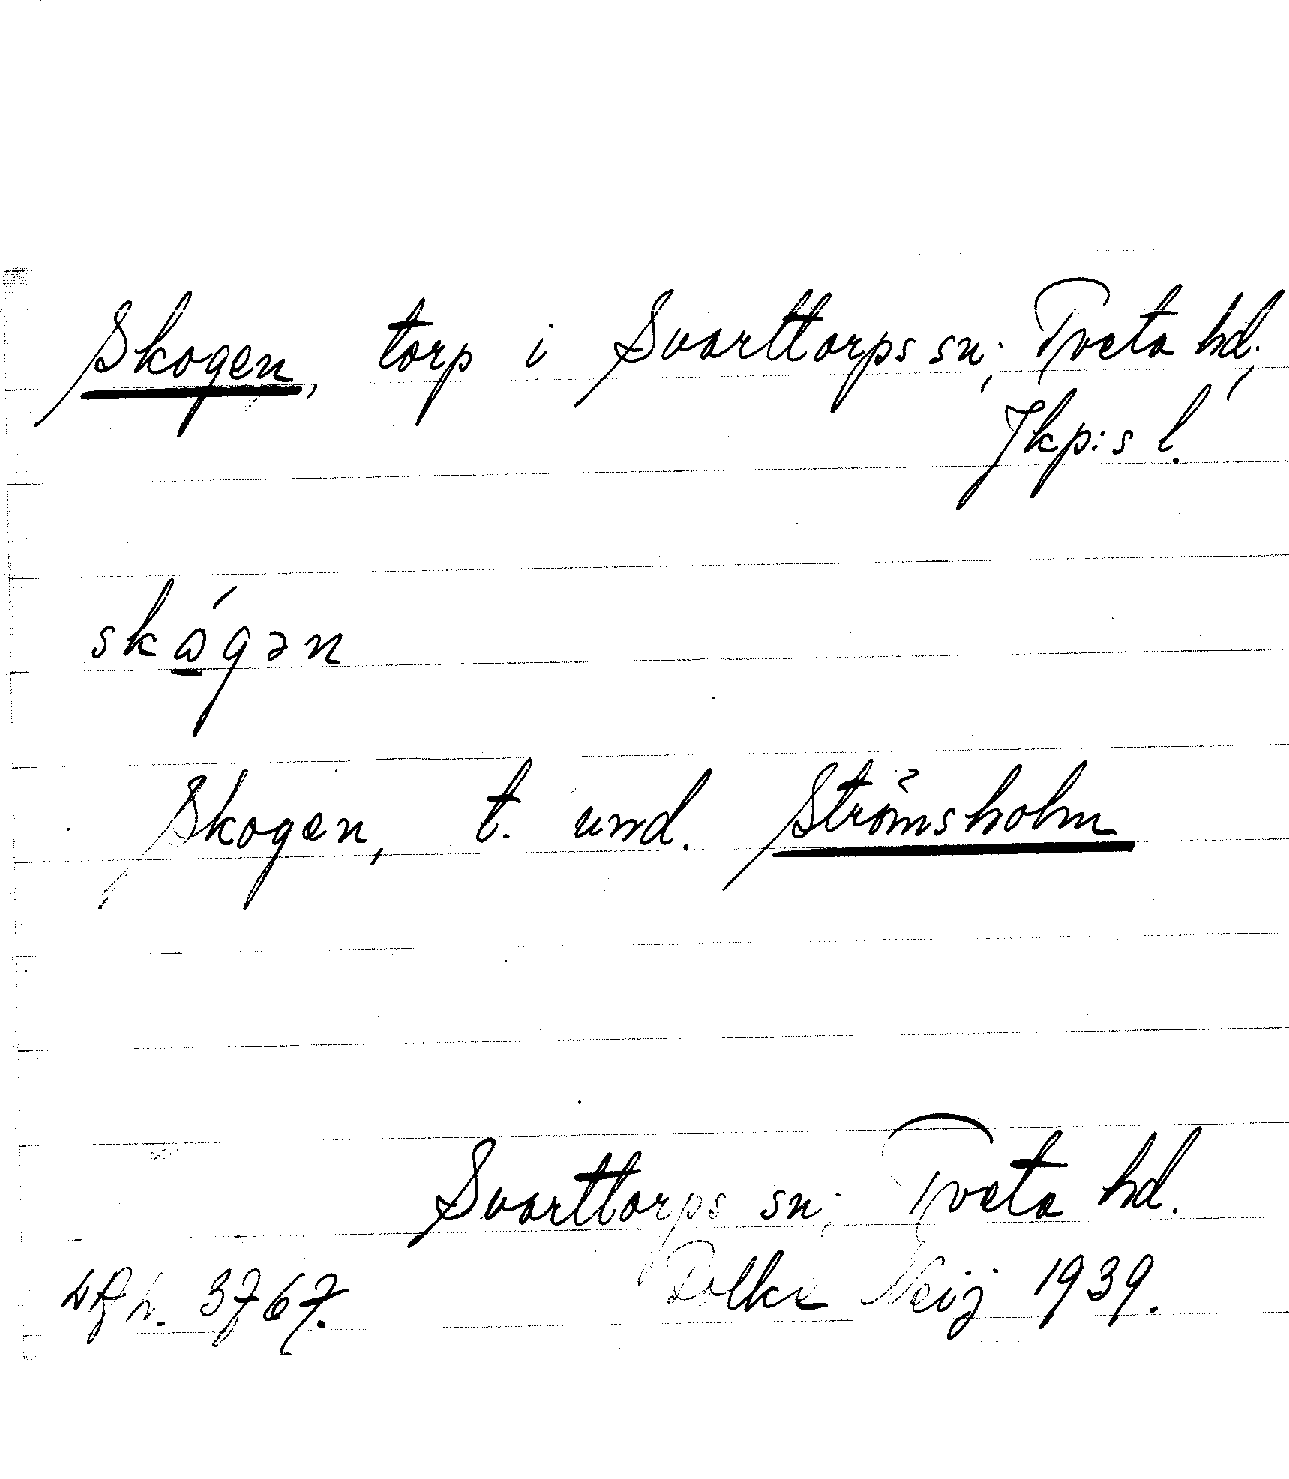 Skogen, torp i Svarttorps sn; Tveta hd;
Jkp:s l.
skógən
Skogen, t. und. Strömsholm
Svarttorps sn; Tveta hd.
3767. Folke Neij 1939.